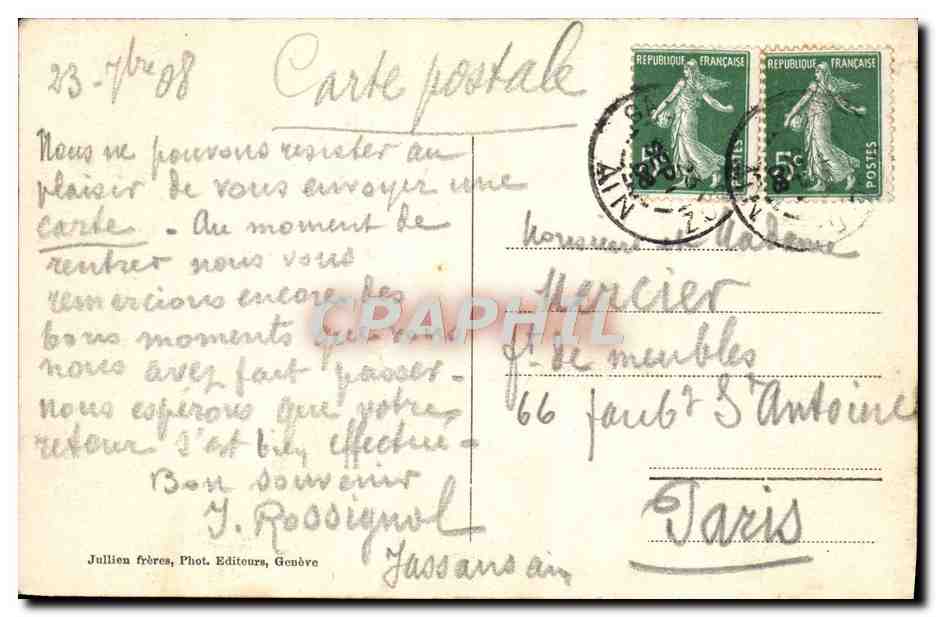 23 - 7bre 08
Carte postale
Nous ne pouvons resister au
plaisir de vous envoyer une
carte - Au moment de
rentrer nous vous
remercions encore des
bons moments que vous
nous avez fait passer -
nous esperons que votre
retour s'est bien effectué -
Bon souvenir
J. Rossignol
Jullien frères, Phot. Editeurs, Genève
REPUBLIQUE FRANÇAISE
5c
POSTES
REPUBLIQUE FRANÇAISE
5c
POSTES
AIN
Monsieur et Madame
Mercier
ft de meubles
66 faubg St Antoine
Paris
CPAPHIL